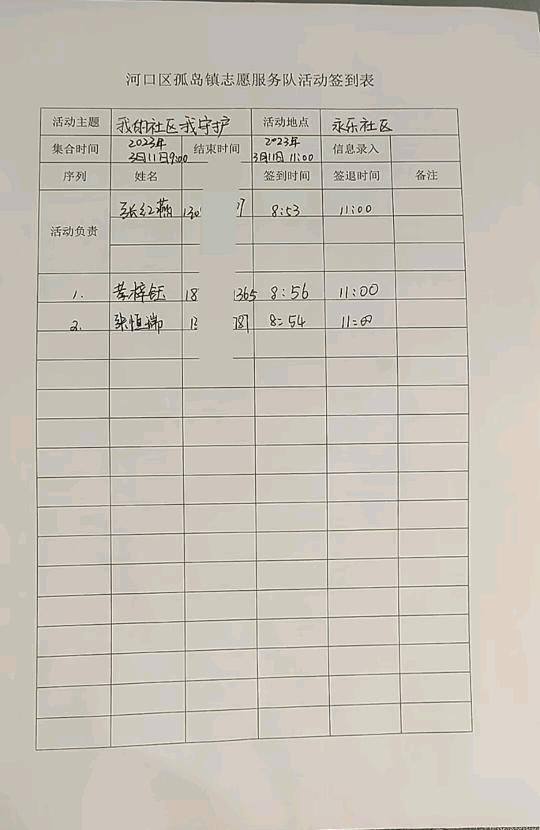 河口区孤岛镇志愿服务队活动签到表
活动主题 我的社区我守护 活动地点 永乐社区
集合时间 2023年3月11日9:00 结束时间 2023年3月11日 11:00 信息录入
序列 姓名 签到时间 签退时间 备注
活动负责 张红燕 8:53 11:00
1. 梓钰 18 1365 8:56 11:00
2. 张恒瑞 13 787 8:54 11:00